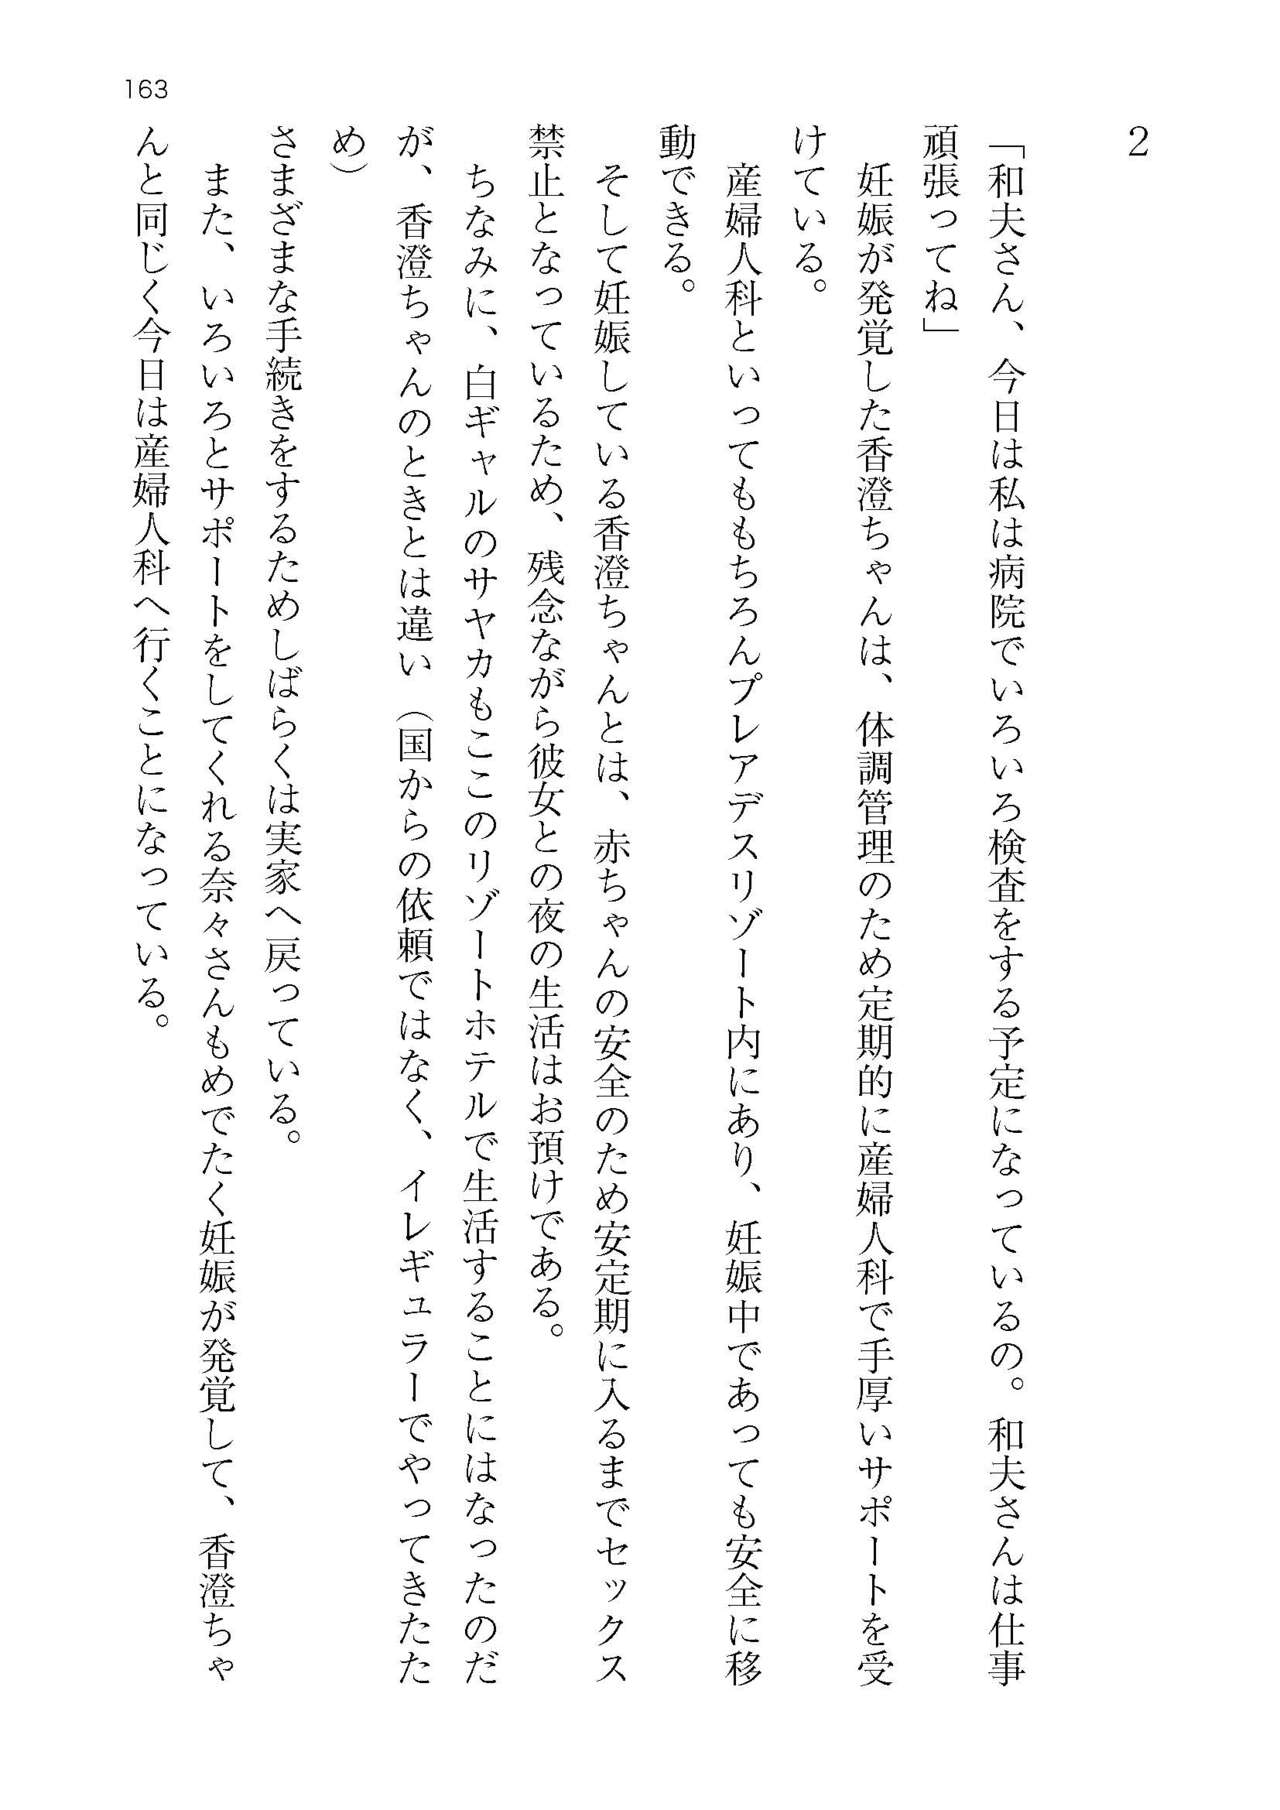 163
2
「和夫さん、今日は私は病院でいろいろ検査をする予定になっているの。和夫さんは仕事
頑張ってね」
妊娠が発覚した香澄ちゃんは、体調管理のため定期的に産婦人科で手厚いサポートを受
けている。
産婦人科といってももちろんプレアデスリゾート内にあり、妊娠中であっても安全に移
動できる。
そして妊娠している香澄ちゃんとは、赤ちゃんの安全のため安定期に入るまでセックス
禁止となっているため、残念ながら彼女との夜の生活はお預けである。
ちなみに、白ギャルのサヤカもここのリゾートホテルで生活することにはなったのだ
が、香澄ちゃんのときとは違い（国からの依頼ではなく、イレギュラーでやってきたた
め）
さまざまな手続きをするためしばらくは実家へ戻っている。
また、いろいろとサポートをしてくれる奈々さんもめでたく妊娠が発覚して、香澄ちゃ
んと同じく今日は産婦人科へ行くことになっている。